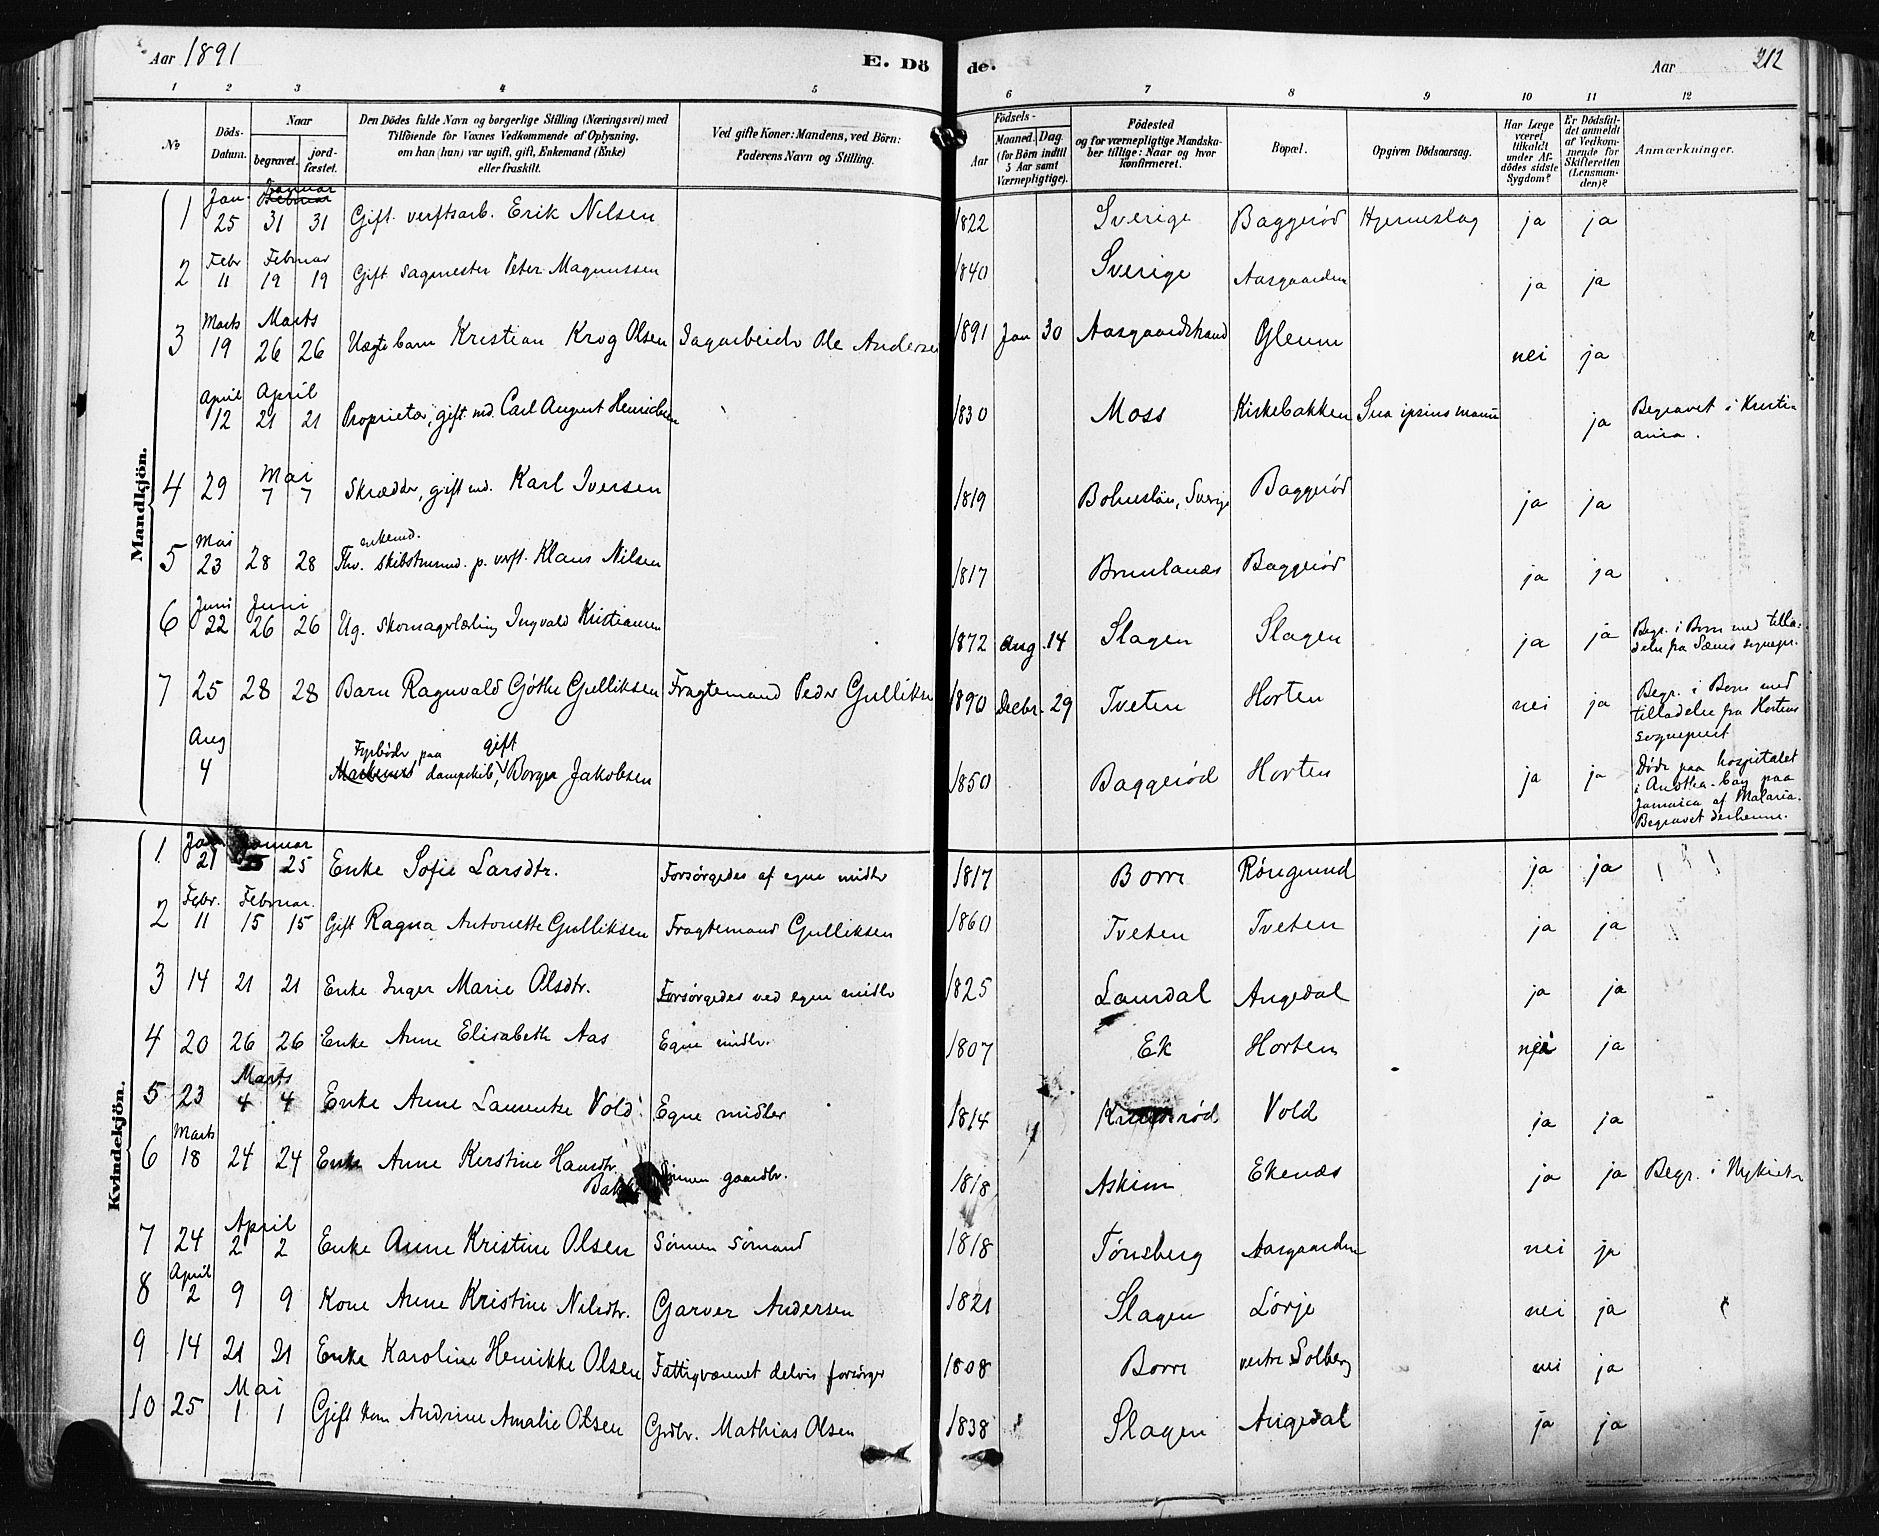 Aar 1891 E. Dö de. Aar 212
1 2 3 4 5 6 7 8 9 10 11 12
No
Döds-Datum.
Naar
begravet.
jord-fæstet.
Den Dödes fulde Navn og borgerlige Stilling (Næringsvei) med
Tilföiende for Voxnes Vedkommende af Oplysning,
om han (hun) var ugift, gift, Enkemand (Enke)
eller fraskilt.
Ved gifte Koner: Mandens, ved Börn:
Faderens Navn og Stilling.
Födsels-
Aar
Maaned. Dag.
(for Börn indtil
5 Aar samt
Værnepligtige).
Födested
og for værnepligtige Mandska-
ber tillige: Naar og hvor
konfirmeret.
Bopæl.
Opgiven Dödsaarsag.
Har Læge
været
tilkaldt
under Af-
dödes sidste
Sygdom?
Er Dödsfal-
det anmeldt
af Vedkom-
mende for
Skifteretten
(Lensman-
den)?
Anmærkninger.
Mandkjön.
Jan. Januar
1 25 31 31 Gift verftsarb. Erik Nilsen 1822 Sverige Baggerød Hjerneslag ja ja
Febr Februar
2 11 19 19 Gift sagmester Peter Magnussen 1840 Sverige Aasgaarden ja ja
Marts Marts
3 19 26 26 Uægte barn Kristian Krog Olsen Dagarbeider Ole Andersen 1891 Jan 30 Aasgaardstrand Glenne nei ja
April April
12 21 21 Proprietær, gift md. Carl August Henrichsen 1830 Moss Kirkebakken Sua ipsius manu ja Begravet i Kristi-
ania.
Mai
4 29 7 7 Skrædder, gift md. Karl Iversen 1819 Bohuslän, Sverige Baggerød ja ja
Mai enkemd.
5 23 28 28 Fhv. skibstømmd. p. verft. Klaus Nilsen 1817 Brunlanæs Baggerød ja ja
Juni Juni
6 22 26 26 Ug. skomagerlærling Ingvald Kristiansen 1872 Aug. 14 Slagen Slagen ja ja Begr. i Borre med tilla-
delse fra Sæms sognepr.
7 25 28 28 Barn Ragnvald Gøthe Gulliksen Fragtemand Peder Gulliksen 1890 Decbr. 29 Tveten Horten nei ja Begr. i Borre med
tilladelse fra Hortens
sogneprest
Aug Fyrbøder paa gift
4 dampskib, Borger Jakobsen 1850 Baggerød Horten ja ja Døde paa hospitalet
i Anotta-bay paa
Jamaica af Malaria.
Begravet derhenne.
Kvindekjön.
Jan Januar
1 21 25 25 Enke Sofie Larsdtr. Forsørgedes af egne midler 1817 Borre Røregrund ja ja
Febr. Februar.
2 11 15 15 Gift Ragna Antonette Gulliksen Fragtemand Gulliksen 1860 Tveten Tveten ja ja
3 14 21 21 Enke Inger Marie Olsdtr. Forsørgedes ved egne midler 1825 Laurdal Augedal ja ja
4 20 26 26 Enke Anne Elisabeth Aas Egne midler. 1807 Ek Horten nei ja
Marts
5 23 4 4 Enke Anne Laurentze Vold Egne midler 1814 Knudsrød Vold ja ja
Marts
6 18 24 24 Enke Anne Kerstine Hansdtr. Sønnen gaardbr. 1818 Askim Ekenæs ja ja Begr. i Nykirke
Bakke
April
7 24 2 2 Enke Anne Kristine Olsen Sønnen sømand 1818 Tønsberg Aasgaarden nei ja
April
8 2 9 9 Kone Anne Kristine Nilsdtr. Garver Andersen 1821 Slagen Lørje nei ja
9 14 21 21 Enke Karoline Henrikke Olsen Fattigvæsenet delvis forsørger 1808 Borre vestre Solberg nei ja
Mai
10 25 1 1 Gift kone Andrine Amalie Olsen Grdbr. Mathias Olsen 1838 Slagen Augedal ja ja